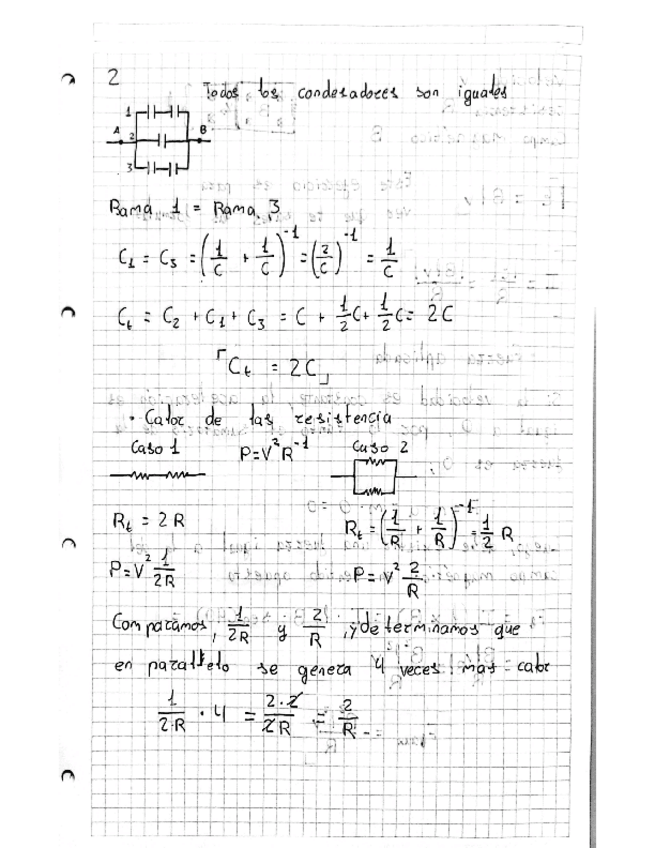 2
Todos los condesadores son iguales
1
A 2 B
3
Rama 1 = Rama 3
C₁ = C₃ = (1/C + 1/C)⁻¹ = (2/C)⁻¹ = 1/C
Cₜ = C₂ + C₁ + C₃ = C + 1/2 C + 1/2 C = 2C
Cₜ = 2C
· Calor de las resistencia
Caso 1 P=V²R⁻¹ Caso 2
Rₜ = 2R Rₜ = (1/R + 1/R)⁻¹ = 1/2 R
P=V² 1/2R P=V² 2/R
Comparamos, 1/2R y 2/R, y determinamos que
en paralelo se genera 4 veces mas calor
1/2·R · 4 = 2·2/2R = 2/R